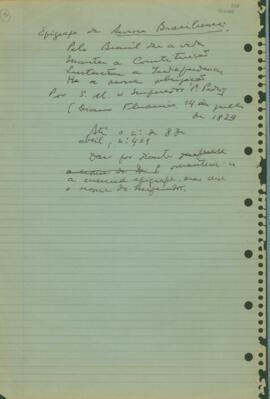 Epígrafe da Aurora Brasiliense:
Pelo Brasil dar a vida
Manter a Constituição
Sustentar a Independencia
He a nossa obrigação
Por S. M. o Imperador D. Pedro I
(Diario Fluminense 14 de julho
de 1829
Até o n.º de 8 de
abril, n.º 959
Daí por diante
a mesma epígrafe, mas sem
o nome do Imperador.